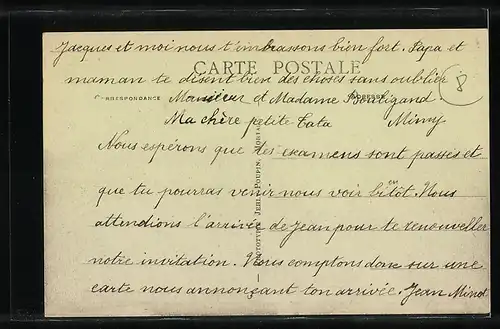 Jacques et moi nous t'embrassons bien fort. Papa et
CARTE POSTALE
maman te disent bien des choses sans oublier
CORRESPONDANCE
ADRESSE
Monsieur et Madame Bouligand.
8
Ma chère petite Tata Mimy
Nous espérons que des examens sont passés et
que tu pourras venir nous voir bientôt. Nous
attendions l'arrivée de Jean pour te renouveller
notre invitation. Nous comptons donc sur une
carte nous annonçant ton arrivée. Jean Minot